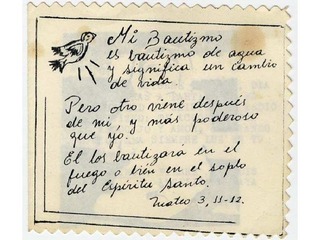 Mi Bautizmo
es bautizmo de agua
y significa un cambio
de vida.
Pero otro viene después
de mi, y más poderoso
que yó.
El los bautizará en el
fuego o bién en el soplo
del Espíritu Santo.
Mateo 3, 11-12.